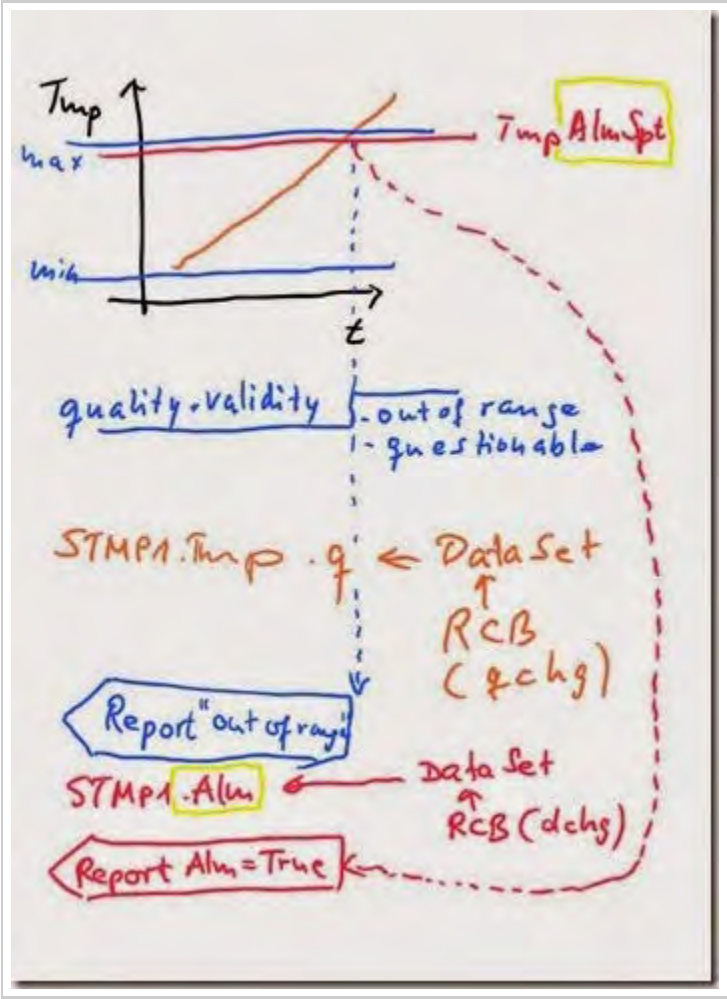 Tmp
TmpAlmSpt
max
min
t
quality.validity
- out of range
- questionable
STMP1.Tmp.q ← DataSet
↑
RCB
(qchg)
Report "out of range"
STMP1.Alm ← DataSet
↑
RCB (dchg)
Report Alm=True